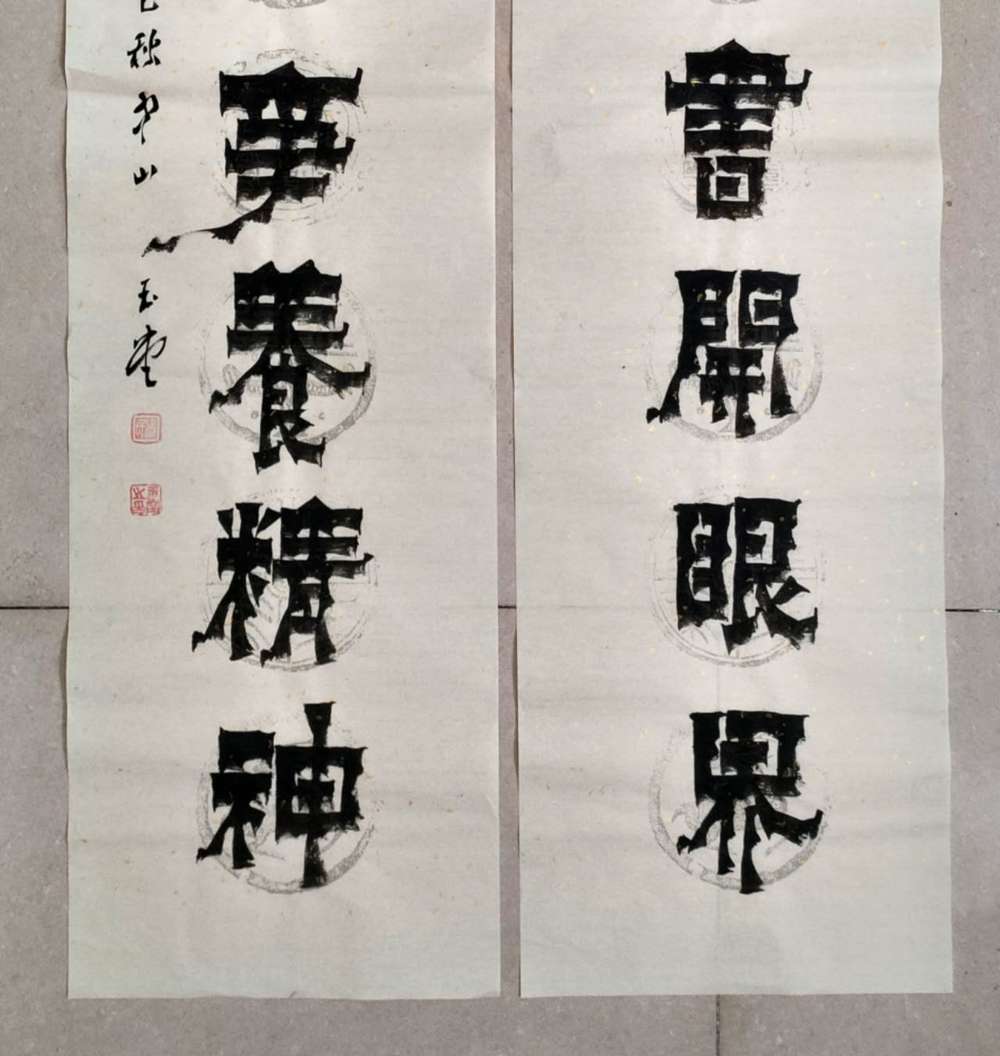 書開眼界
事養精神
秋山玉堂